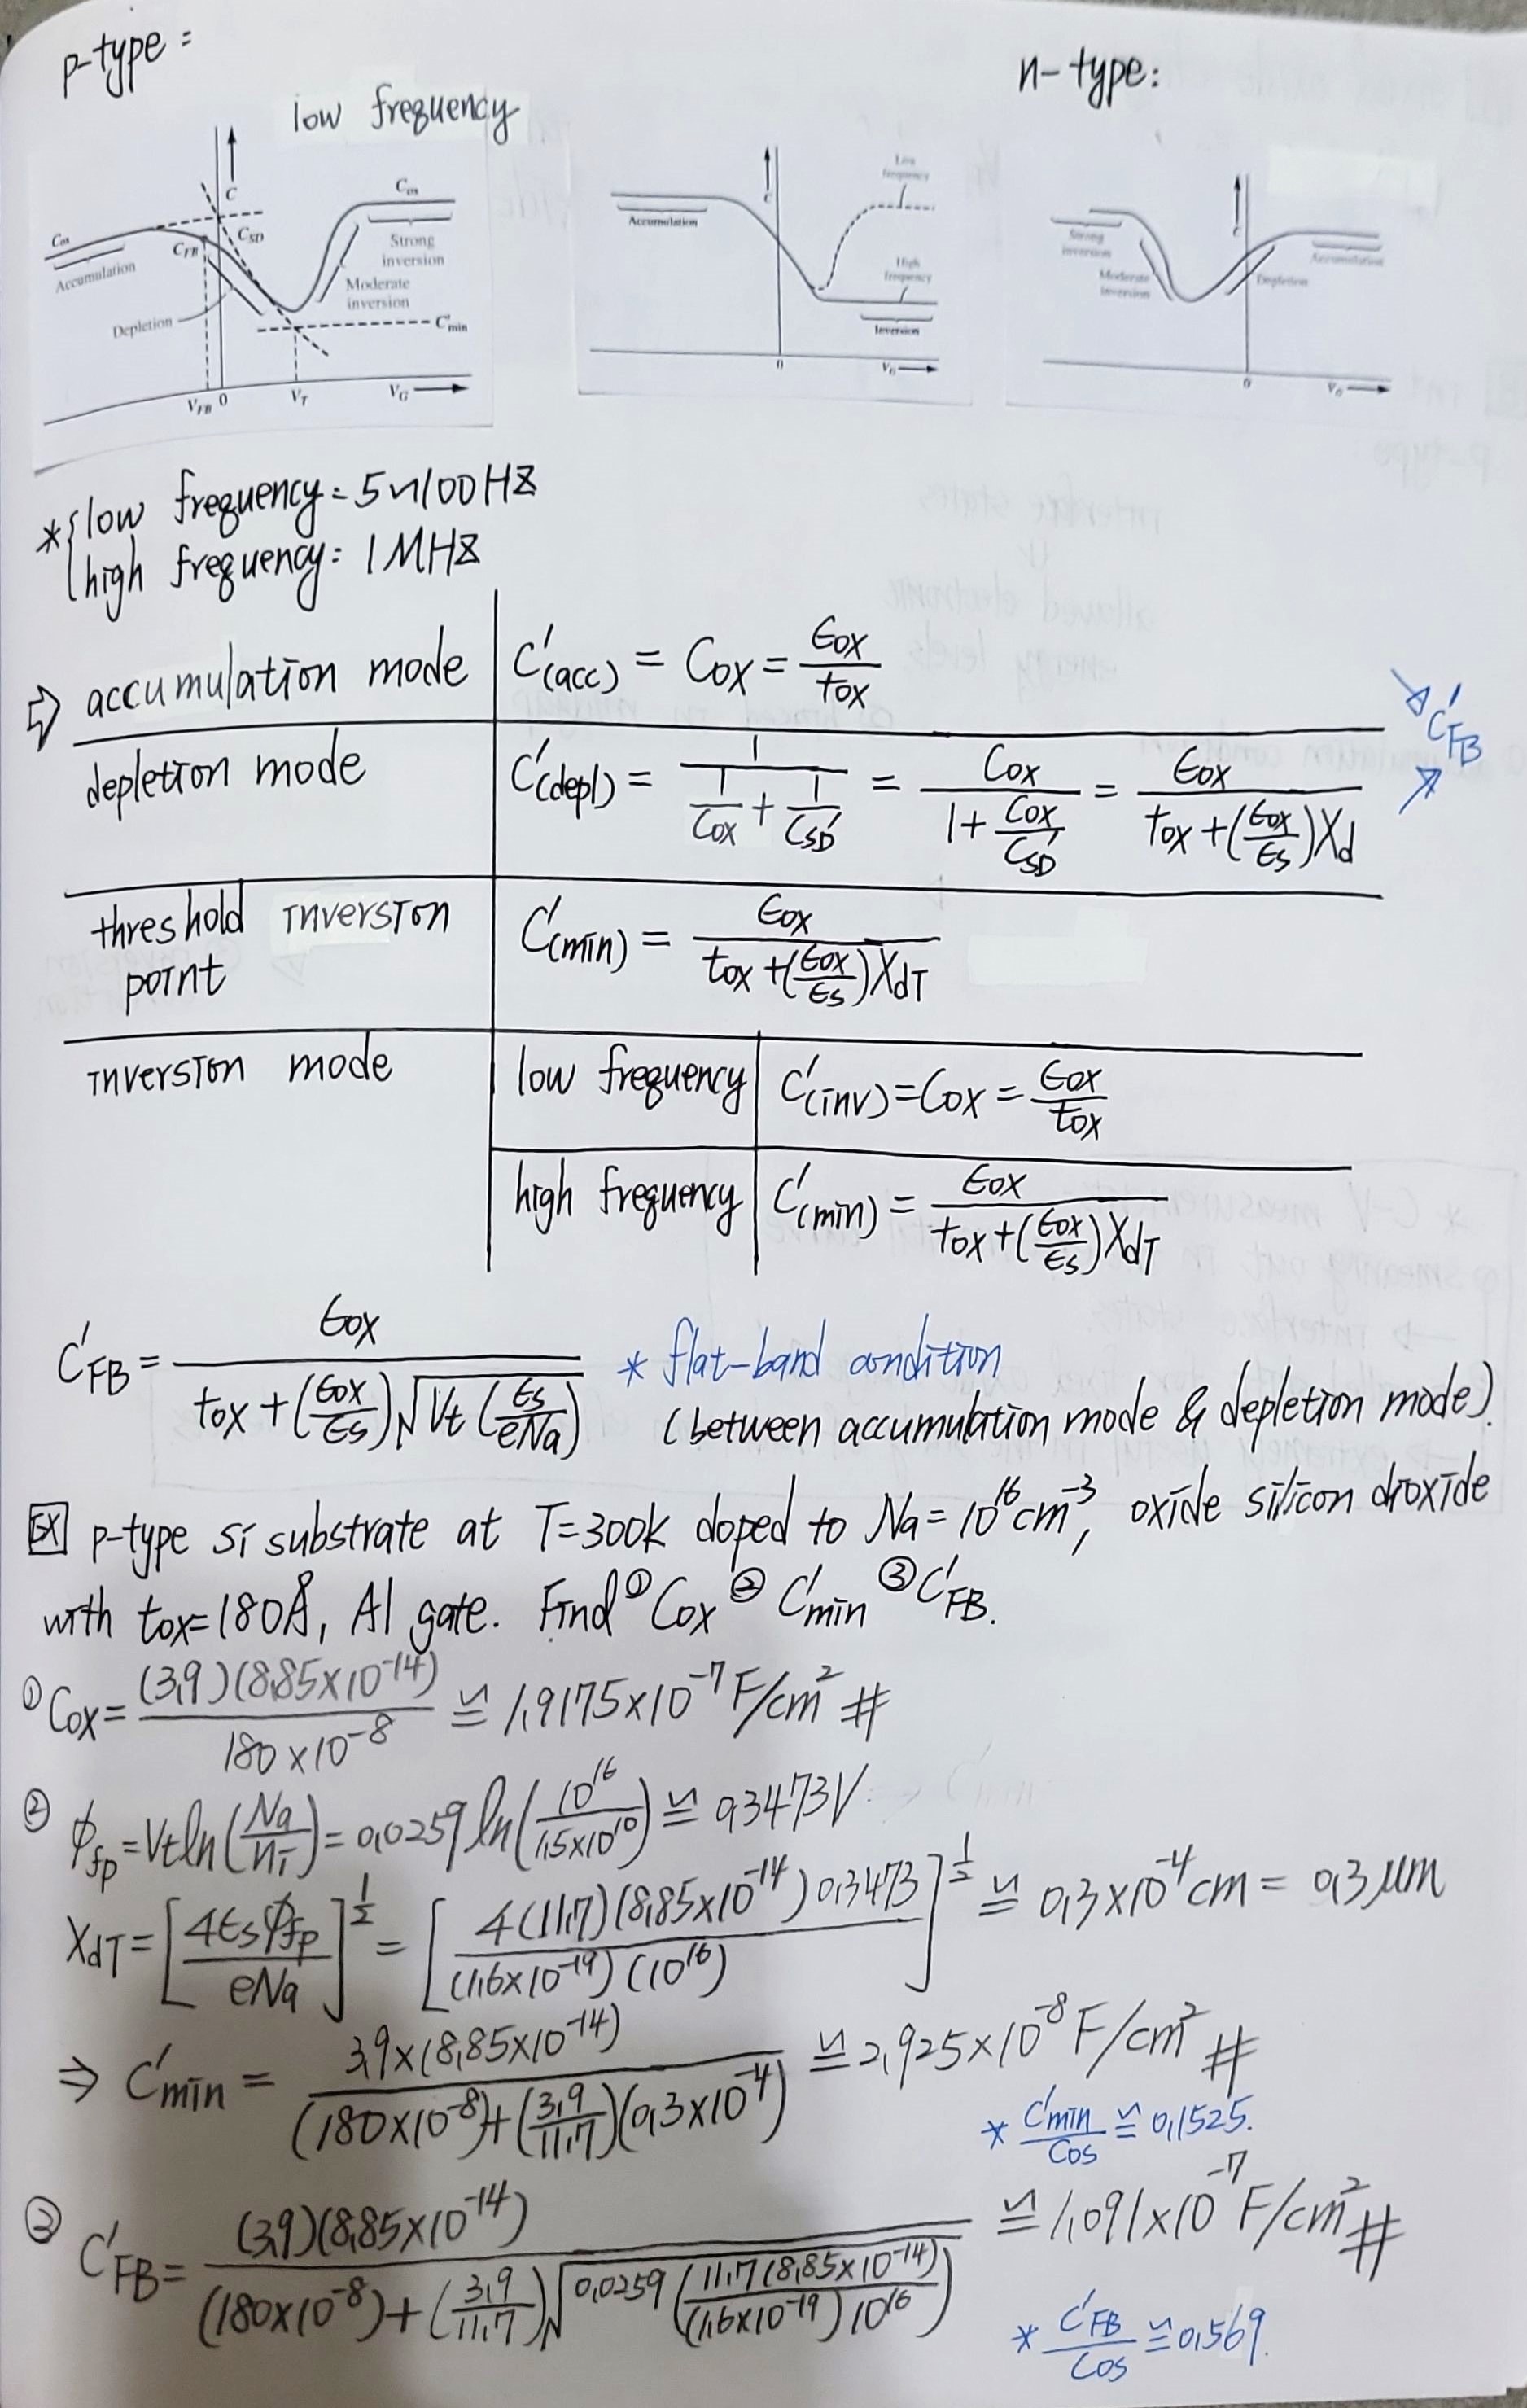 p-type:
n-type:
low frequency
C
Cox
CSD
CFB
Cox
Accumulation
Strong
inversion
Moderate
inversion
Depletion
C'min
VFB 0 VT VG
Accumulation
C
Low
frequency
High
frequency
Inversion
0 VG
C
Strong
inversion
Moderate
inversion
Accumulation
Depletion
0 VG
*{low frequency: 5~100HZ
high frequency: 1MHZ
⇒ accumulation mode C'(acc) = Cox = ϵox/tox
C'FB
depletion mode C'(depl) = 1/(1/Cox + 1/C'SD) = Cox/(1+Cox/C'SD) = ϵox/(tox+(ϵox/ϵs)Xd)
threshold inversion
point
C'(min) = ϵox/(tox+(ϵox/ϵs)XdT)
inversion mode low frequency C'(inv)=Cox=ϵox/tox
high frequency C'(min) = ϵox/(tox+(ϵox/ϵs)XdT)
C'FB = ϵox/(tox+(ϵox/ϵs)√(Vt(ϵs/eNa))) * flat-band condition
(between accumulation mode & depletion mode).
EX p-type si substrate at T=300k doped to Na=10^16cm^-3, oxide silicon dioxide
with tox=180Å, Al gate. Find ①Cox ②C'min ③C'FB.
① Cox = (3.9)(8.85×10^-14)/(180×10^-8) ≌ 1.9175×10^-7 F/cm² #
② φfp=Vtln(Na/ni)=0.0259 ln(10^16/1.5×10^10) ≌ 0.3473V
XdT=[4ϵsφfp/eNa]^1/2 = [4(11.7)(8.85×10^-14)0.3473/(1.6×10^-19)(10^16)]^1/2 ≌ 0.3×10^-4cm = 0.3μm
⇒ C'min = 3.9×(8.85×10^-14)/((180×10^-8)+(3.9/11.7)(0.3×10^-4)) ≌ 2.925×10^-8 F/cm² #
* C'min/Cos ≌ 0.1525.
③ C'FB = (3.9)(8.85×10^-14)/((180×10^-8)+(3.9/11.7)√(0.0259(11.7(8.85×10^-14)/(1.6×10^-19)10^16))) ≌ 1.091×10^-7 F/cm² #
* C'FB/Cos ≌ 0.569.